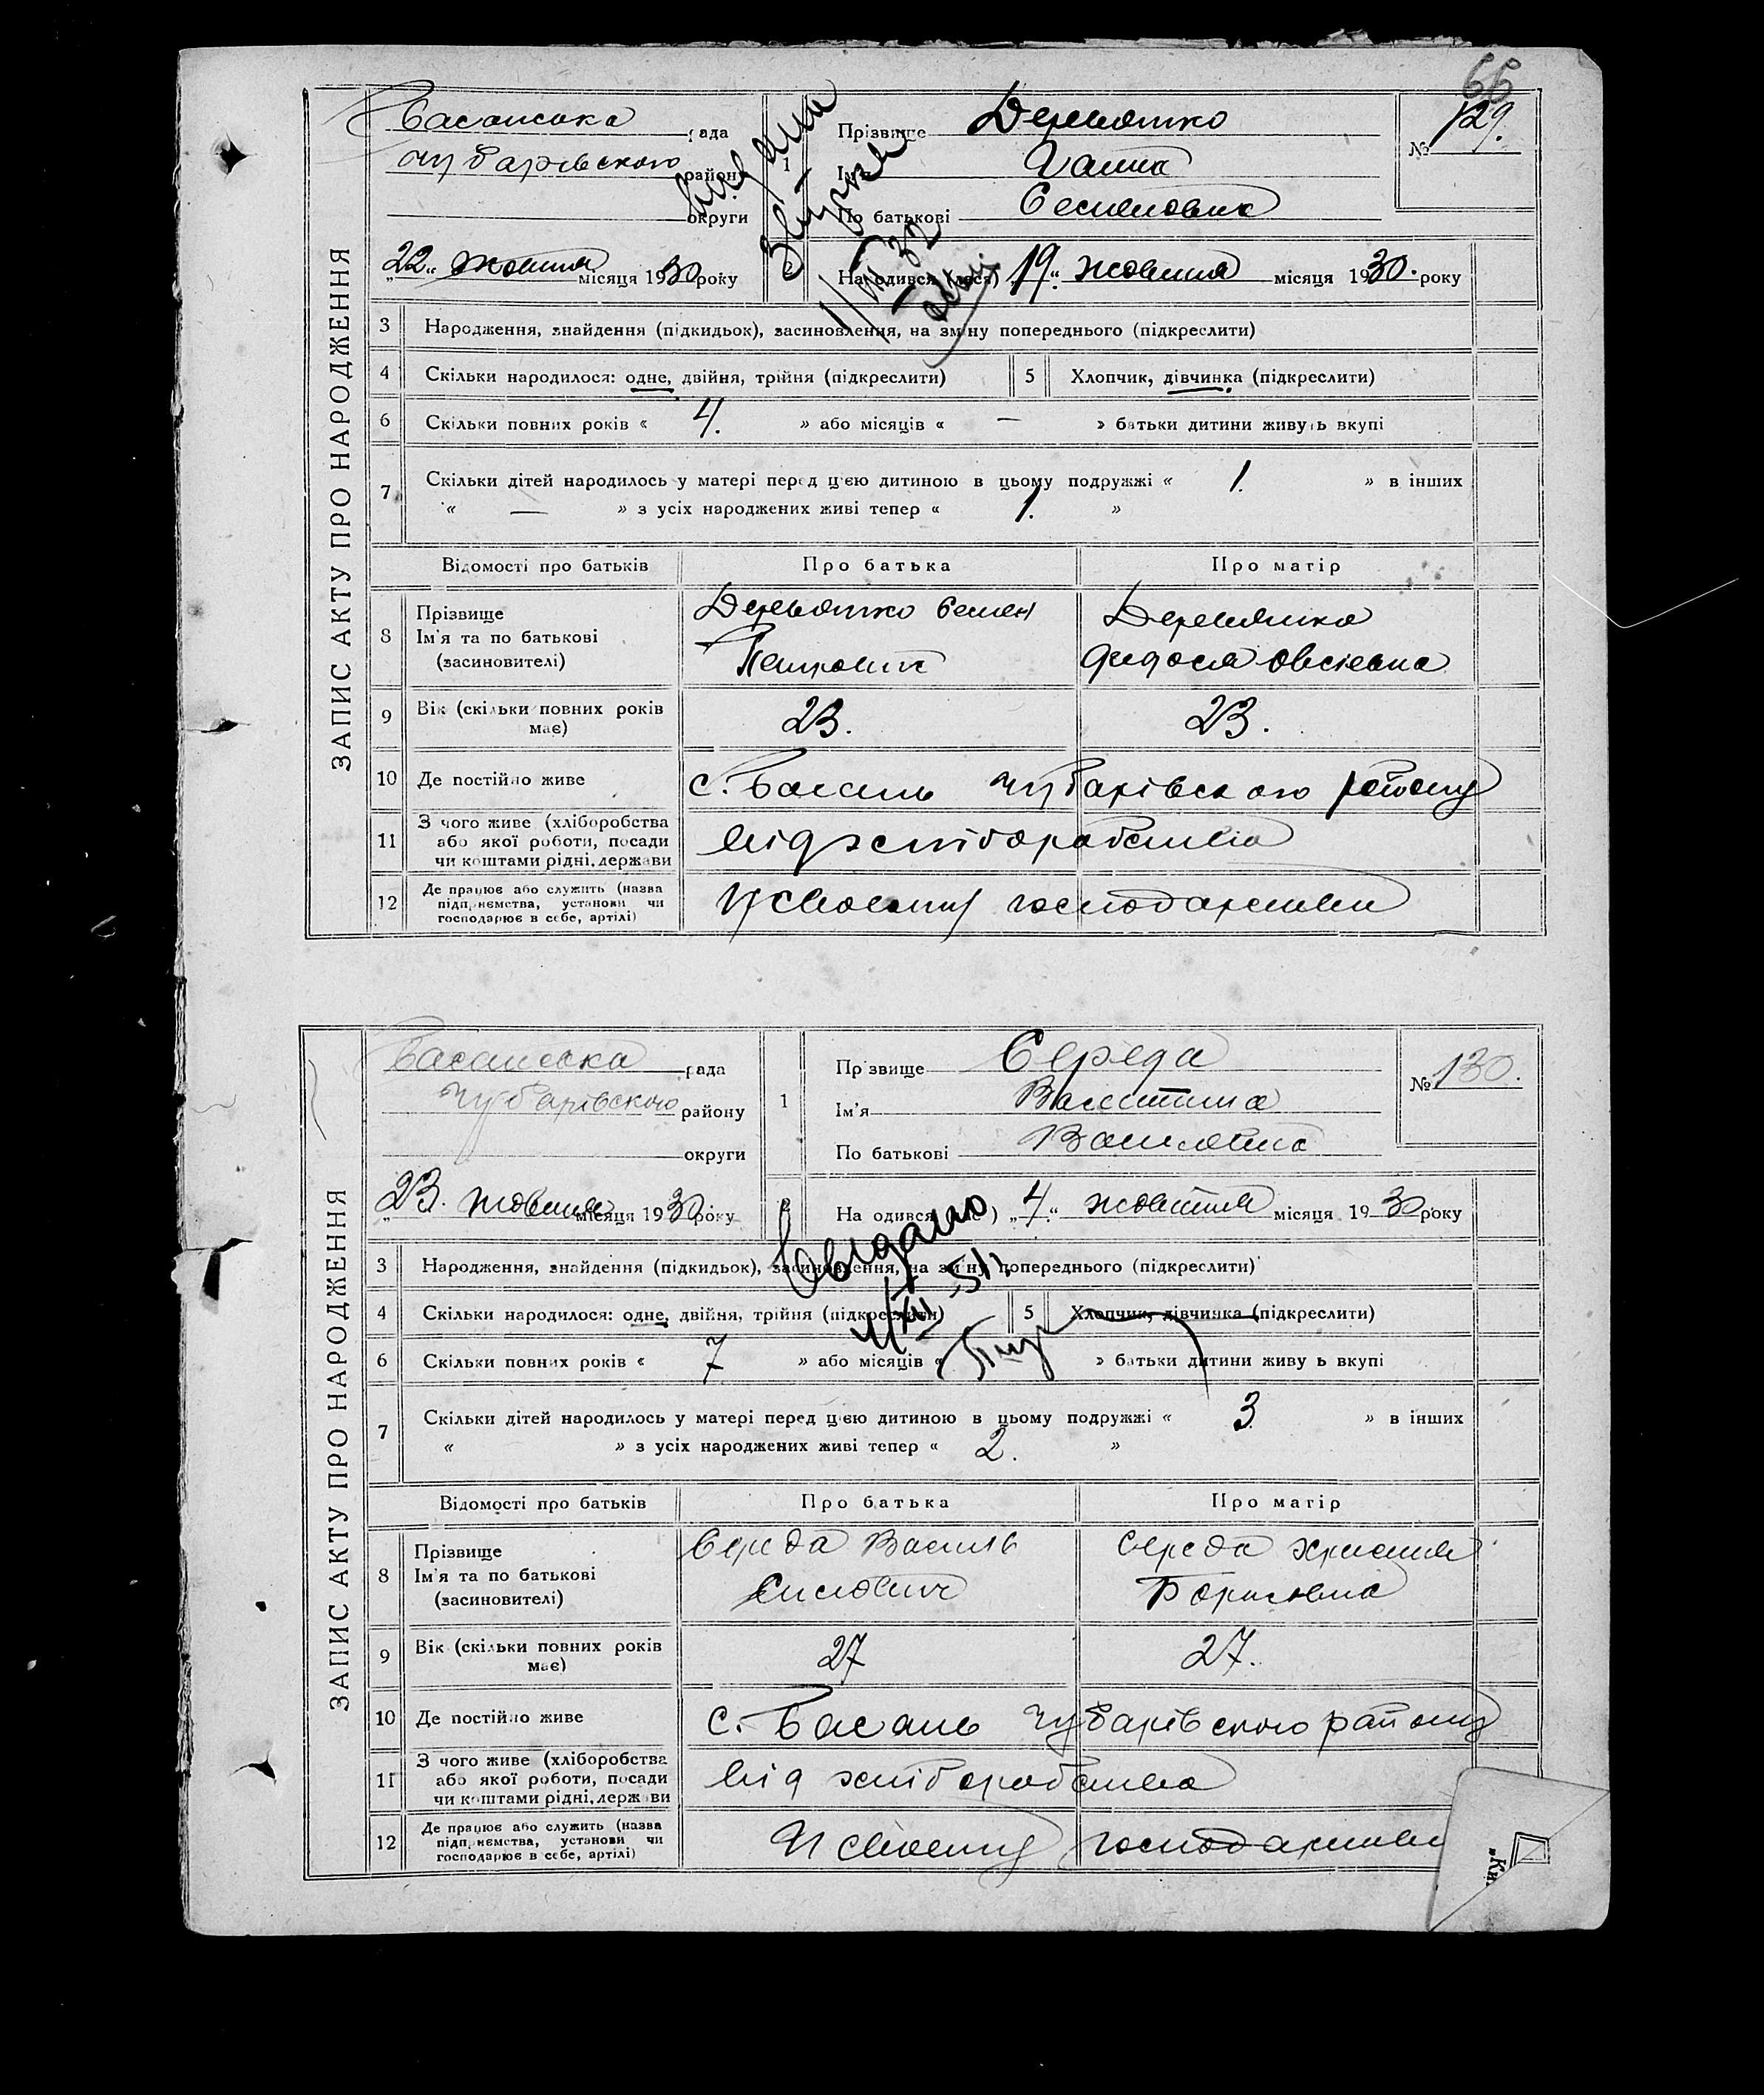 66
ЗАПИС АКТУ ПРО НАРОДЖЕННЯ
Басанська рада
Чубарівського району
округи
„22“ жовтня місяця 1930 року
1
Прізвище Деревятко
Ім'я Ганна
По батькові Семеновна
№ 129.
Видана
2 Народився (лося) „19“ жовтня місяця 1930. року
3 Народження, знайдення (підкидьок), засиновлення, на зміну попереднього (підкреслити)
4 Скільки народилося: одне, двійня, трійня (підкреслити) 5 Хлопчик, дівчинка (підкреслити)
6 Скільки повних років « 4. » або місяців « — » батьки дитини живуть вкупі
7 Скільки дітей народилось у матері перед цією дитиною в цьому подружжі « 1. » в інших
« — » з усіх народжених живі тепер « 1. »
Відомості про батьків Про батька Про матір
8 Прізвище
Ім'я та по батькові
(засиновителі)
Деревятко Семен
Петрович
Деревятко
Федося Овсієвна
9 Вік (скільки повних років
має)
23. 23.
10 Де постійно живе с. Басань Чубарівського району
11 З чого живе (хліборобства
або якої роботи, посади
чи коштами рідні, держави
від хліборобства
12 Де працює або служить (назва
підприємства, установи чи
господарює в себе, артілі)
У своєму господарстві
ЗАПИС АКТУ ПРО НАРОДЖЕННЯ
Басанська рада
Чубарівського району
округи
„23. жовтня місяця 1930 року
1
Прізвище Середа
Ім'я
По батькові Василівна
№ 130.
2 Народився (лася) „4“ жовтня місяця 1930 року
3 Народження, знайдення (підкидьок), засиновлення, на зміну попереднього (підкреслити)
4 Скільки народилося: одне, двійня, трійня (підкреслити) 5 Хлопчик, дівчинка (підкреслити)
6 Скільки повних років « 7 » або місяців « » батьки дитини живуть вкупі
7 Скільки дітей народилось у матері перед цією дитиною в цьому подружжі « 3 » в інших
« » з усіх народжених живі тепер « 2. »
Відомості про батьків Про батька Про матір
8 Прізвище
Ім'я та по батькові
(засиновителі)
Середа Василь
Середа Христя
Борисовна
9 Вік (скільки повних років
має)
27 27.
10 Де постійно живе с. Басань Чубарівського району
11 З чого живе (хліборобства
або якої роботи, посади
чи коштами рідні, держави
від хліборобства
12 Де працює або служить (назва
підприємства, установи чи
господарює в себе, артілі)
У своєму господарстві
„Ки